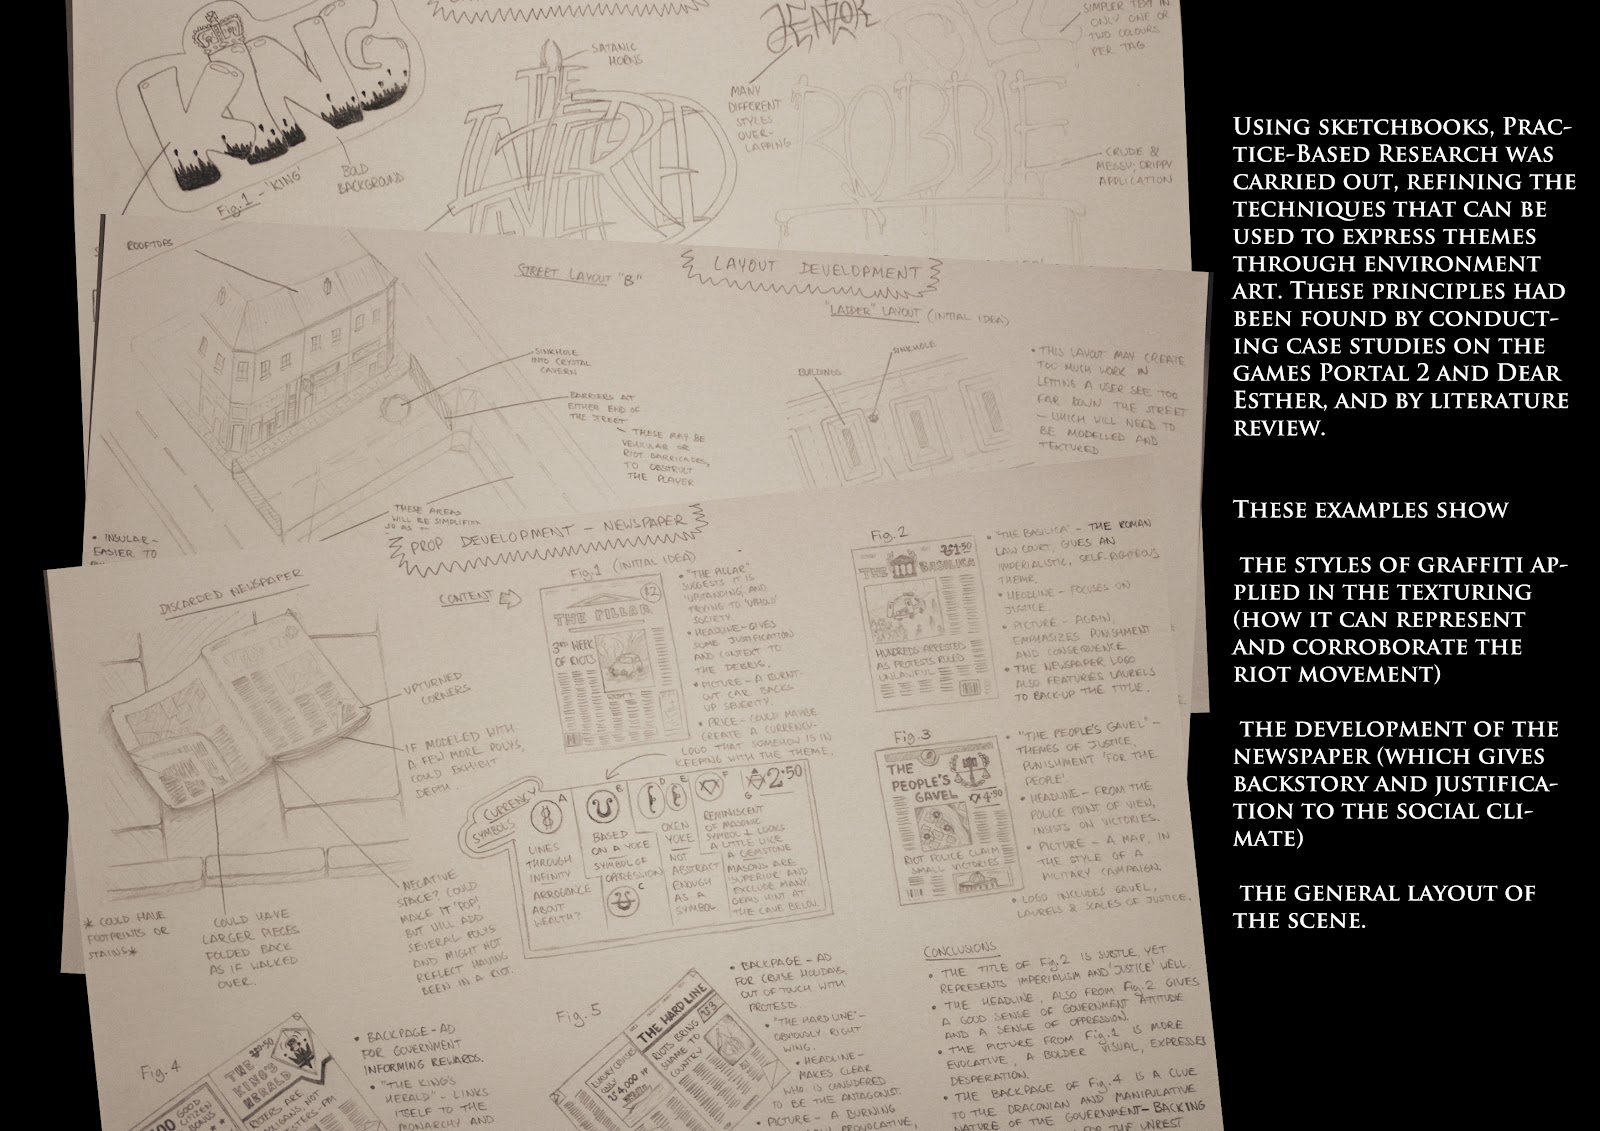 KING
Fig.1 - 'KING'
BOLD
BACKGROUND
THE
SATANIC
HORNS
JENZOR
MANY
DIFFERENT
STYLES
OVER-
LAPPING
ROBBIE
SIMPLER TEXT IN
ONLY ONE OR
TWO COLOURS
PER TAG
CRUDE &
MESSY; DRIPPY
APPLICATION
ROOFTOPS
STREET LAYOUT "B"
LAYOUT DEVELOPMENT
"LADDER" LAYOUT (INITIAL IDEA)
SINKHOLE
INTO CRYSTAL
CAVERN
BARRIERS AT
EITHER END OF
THE STREET
- THESE MAY BE
VEHICULAR OR
RIOT BARRICADES,
TO OBSTRUCT
THE PLAYER
BUILDINGS
SINKHOLE
• THIS LAYOUT MAY CREATE
TOO MUCH WORK IN
LETTING A USER SEE TOO
FAR DOWN THE STREET
- WHICH WILL NEED TO
BE MODELLED AND
TEXTURED
THESE AREAS
WILL BE SIMPLIFIED
• INSULAR-
EASIER TO
PROP DEVELOPMENT - NEWSPAPER
DISCARDED NEWSPAPER
CONTENT
UPTURNED
CORNERS
IF MODELED WITH
A FEW MORE POLYS,
COULD EXHIBIT
DEPTH
* COULD HAVE
FOOTPRINTS OR
STAINS *
COULD HAVE
LARGER PIECES
FOLDED BACK
AS IF WALKED
OVER.
NEGATIVE
SPACE? COULD
MAKE IT 'POP',
BUT WILL ADD
SEVERAL POLYS
AND MIGHT NOT
REFLECT HAVING
BEEN IN A RIOT.
Fig.1 (INITIAL IDEA)
THE PILLAR
3RD WEEK
OF RIOTS
• "THE PILLAR"
SUGGESTS IT IS
'UPSTANDING' AND
TRYING TO 'UPHOLD'
SOCIETY
• HEADLINE - GIVES
SOME JUSTIFICATION
AND CONTEXT TO
THE DEBRIS.
• PICTURE - A BURNT-
OUT CAR BACKS
UP SEVERITY.
• PRICE - COULD MAYBE
CREATE A CURRENCY
LOGO THAT SOMEHOW IS IN
KEEPING WITH THE THEME.
Fig.2
THE BASILICA
HUNDREDS ARRESTED
AS PROTESTS RULED
UNLAWFUL
• 'THE BASILICA' - THE ROMAN
LAW COURT, GIVES AN
IMPERIALISTIC, SELF-RIGHTEOUS
THEME.
• HEADLINE - FOCUSES ON
JUSTICE.
• PICTURE - AGAIN,
EMPHASIZES PUNISHMENT
AND CONSEQUENCE
• THE NEWSPAPER LOGO
ALSO FEATURES LAURELS
TO BACK-UP THE TITLE.
Fig.3
THE
PEOPLE'S
GAVEL
4.50
RIOT POLICE CLAIM
SMALL VICTORIES
• "THE PEOPLE'S GAVEL" -
THEMES OF JUSTICE,
PUNISHMENT 'FOR THE
PEOPLE'.
• HEADLINE - FROM THE
POLICE POINT OF VIEW,
INSISTS ON VICTORIES.
• PICTURE - A MAP, IN
THE STYLE OF A
MILITARY CAMPAIGN.
• LOGO INCLUDES GAVEL,
LAURELS & SCALES OF JUSTICE.
CURRENCY
SYMBOLS
A
LINES
THROUGH
INFINITY
ARROGANCE
ABOUT
WEALTH?
B
BASED
ON A YOKE
SYMBOL OF
OPPRESSION
C
D
E
OXEN
YOKE
NOT
ABSTRACT
ENOUGH
AS A
SYMBOL
F
G
2.50
REMINISCENT
OF MASONIC
SYMBOL & LOOKS
A LITTLE LIKE
A GEMSTONE
MASONS ARE
'SUPERIOR' AND
EXCLUDE MANY.
GEMS HINT AT
THE CAVE BELOW.
Fig.4
THE
KING'S
HERALD
GOOD
CITIZEN
BONUS
• BACKPAGE - AD
FOR GOVERNMENT
INFORMING REWARDS.
• "THE KING'S
HERALD" - LINKS
ITSELF TO THE
MONARCHY AND
Fig.5
THE HARD LINE
RIOTS BRING
SHAME TO
COUNTRY
• BACKPAGE - AD
FOR CRUISE HOLIDAYS,
OUT OF TOUCH WITH
PROTESTS.
• "THE HARD LINE" -
OBVIOUSLY RIGHT
WING.
• HEADLINE -
MAKES CLEAR
WHO IS CONSIDERED
TO BE THE ANTAGONIST.
• PICTURE - A BURNING
PROVOCATIVE,
CONCLUSIONS
• THE TITLE OF Fig.2 IS SUBTLE YET
REPRESENTS IMPERIALISM AND 'JUSTICE' WELL.
• THE HEADLINE, ALSO FROM Fig.2 GIVES
A GOOD SENSE OF GOVERNMENT ATTITUDE
AND A SENSE OF OPPRESSION.
• THE PICTURE FROM Fig.1 IS MORE
EVOCATIVE, A BOLDER VISUAL, EXPRESSES
DESPERATION.
• THE BACKPAGE OF Fig.4 IS A CLUE
TO THE DRACONIAN AND MANIPULATIVE
NATURE OF THE GOVERNMENT - BACKING
FOR THE UNREST
Using sketchbooks, Prac-
tice-Based Research was
carried out, refining the
techniques that can be
used to express themes
through environment
art. These principles had
been found by conduct-
ing case studies on the
games Portal 2 and Dear
Esther, and by literature
review.
These examples show
the styles of graffiti ap-
plied in the texturing
(how it can represent
and corroborate the
riot movement)
the development of the
newspaper (which gives
backstory and justifica-
tion to the social cli-
mate)
the general layout of
the scene.